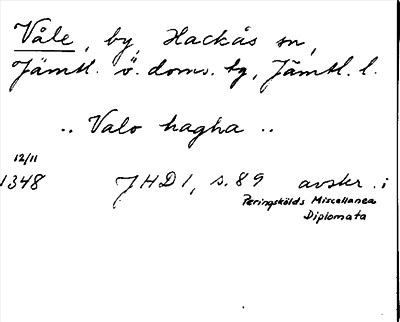 Våle, by, Hackås sn,
Jämtl. ö. doms. tg, Jämtl. l.
.. Valo hagha ..
12/11
1348 JHD 1, s. 89 avskr. i
Peringskölds Miscellanea
Diplomata